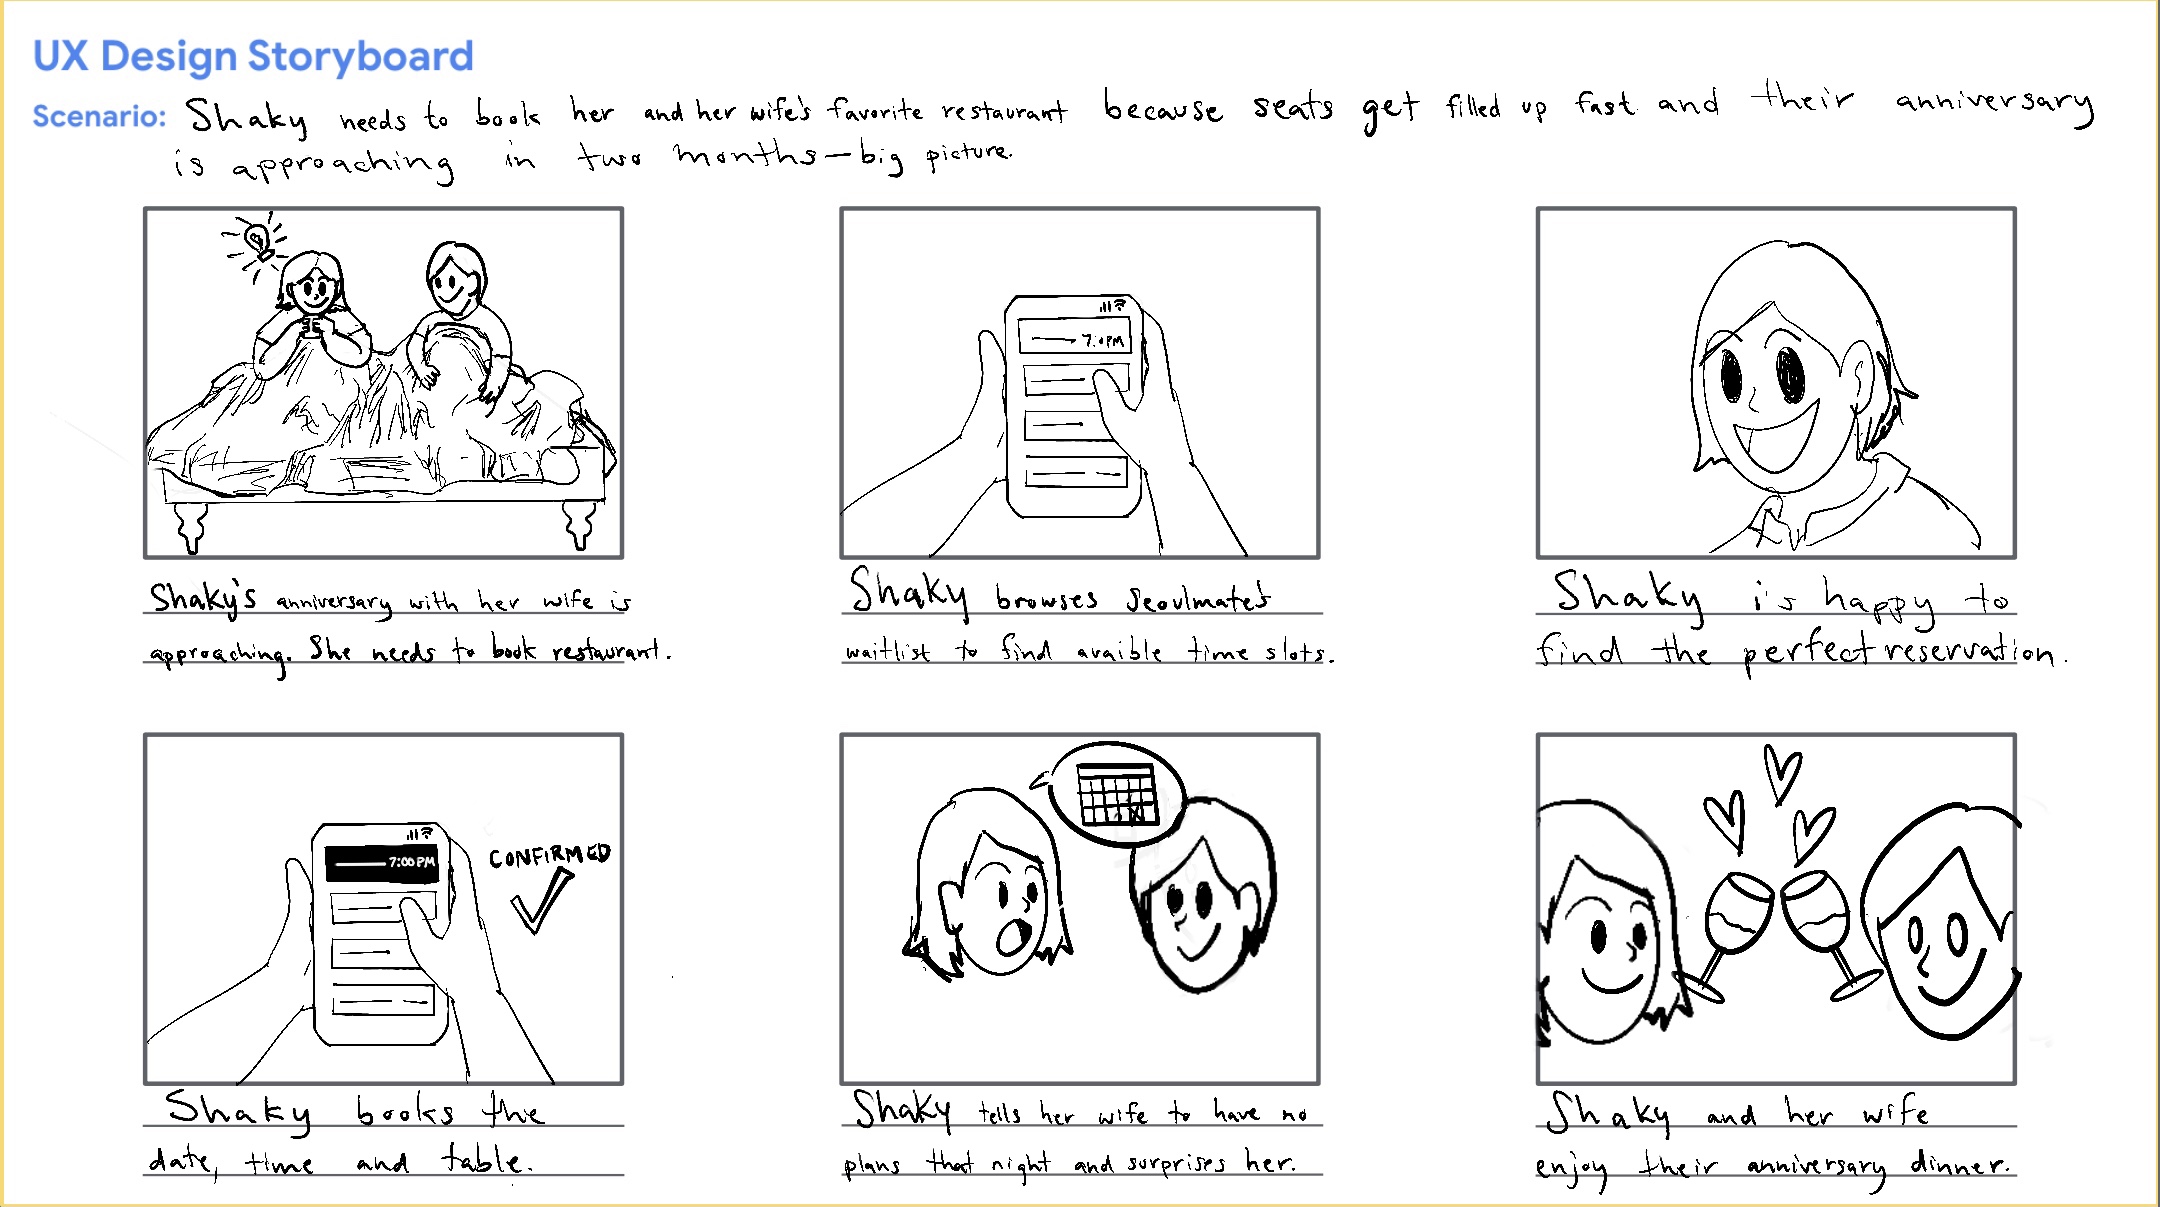 UX Design Storyboard
Scenario: Shaky needs to book her and her wife's favorite restaurant because seats get filled up fast and their anniversary
is approaching in two months—big picture.
7:0PM
Shaky's anniversary with her wife is
approaching. She needs to book restaurant.
Shaky browses Seoulmate's
waitlist to find avaible time slots.
Shaky is happy to
find the perfect reservation.
7:00 PM
CONFIRMED
Shaky books the
date, time and table.
Shaky tells her wife to have no
plans that night and surprises her.
Shaky and her wife
enjoy their anniversary dinner.